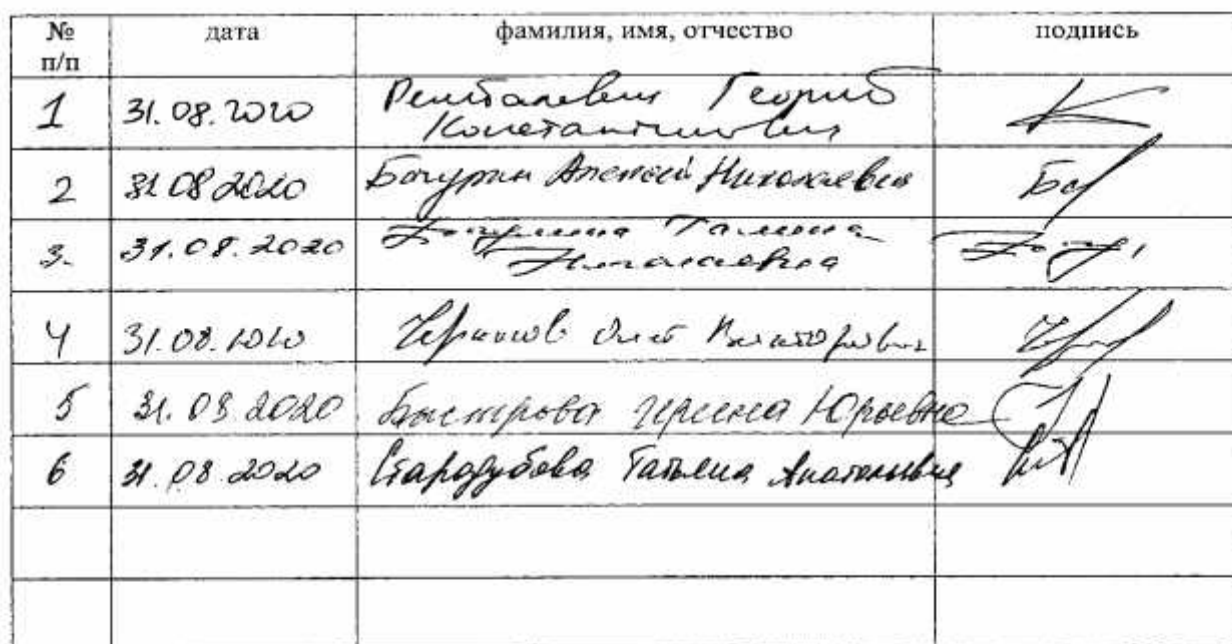 № п/п дата фамилия, имя, отчество подпись
1 31.08.2020 Георгий
Константинович
2 31.08.2020 Бачурин Алексей Николаевич
3. 31.08.2020 Галина
Николаевна
4 31.08.2020 Олег Викторович
5 31.08.2020 Быстрова Ирина Юрьевна
6 31.08.2020 Стародубова Татьяна Анатольевна